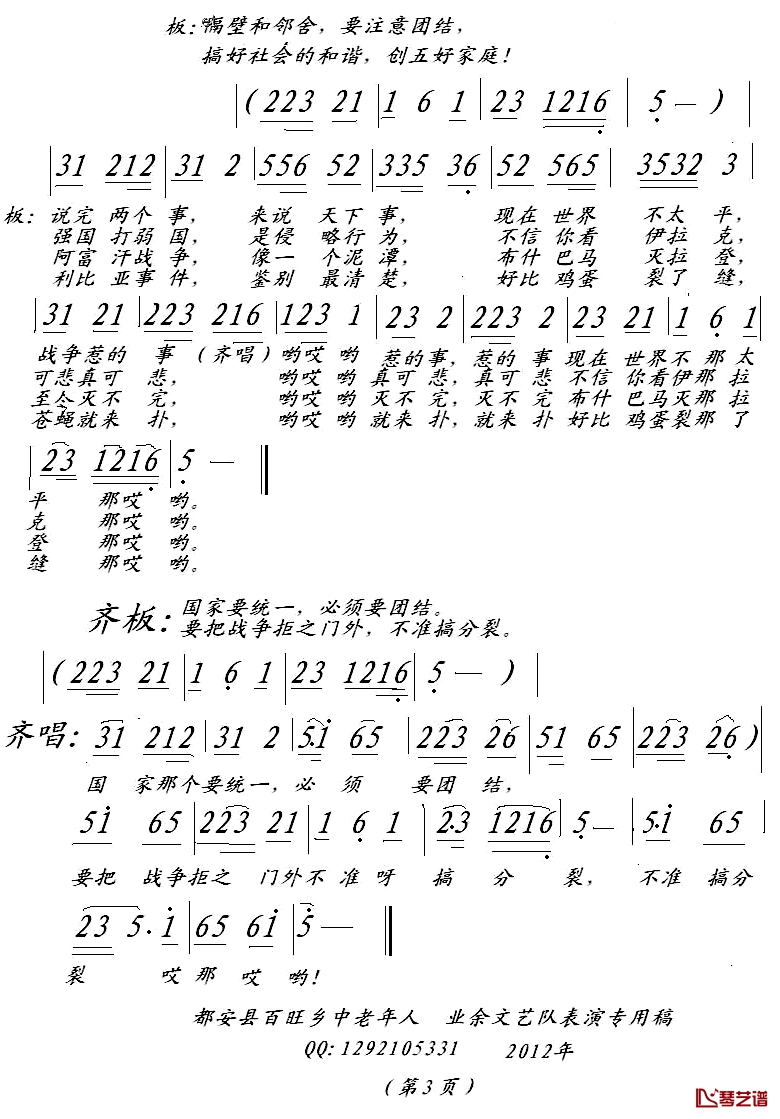 板:"隔壁和邻舍，要注意团结，
搞好社会的和谐，创五好家庭！
(223 21 | 1 6 1 | 23 1216 | 5 — ) |
| 31 212 | 31 2 | 556 52 | 335 36 | 52 565 | 3532 3 |
板：说完 两个 事， 来说 天下 事， 现在 世界 不太 平，
强国 打弱 国， 是侵 略行 为， 不信 你看 伊拉 克，
阿富 汗战 争， 像一 个泥 潭， 布什 巴马 灭拉 登，
利比 亚事 件， 鉴别 最清 楚， 好比 鸡蛋 裂了 缝，
| 31 21 | 223 216 | 123 1 | 23 2 | 223 2 | 23 21 | 1 6 1 |
战争惹的 事（齐唱）哟哎哟 惹的事，惹的 事 现在 世界不 那太
可悲真可 悲， 哟哎哟 真可悲，真可 悲 不信 你看伊那 拉
至今灭不 完， 哟哎哟 灭不完，灭不 完 布什 巴马灭那 拉
苍蝇就来 扑， 哟哎哟 就来扑，就来 扑 好比 鸡蛋裂那 了
| 23 1216 | 5 — ‖
平 那哎 哟。
克 那哎 哟。
登 那哎 哟。
缝 那哎 哟。
齐板：国家要统一，必须要团结。
要把战争拒之门外，不准搞分裂。
| (223 21 | 1 6 1 | 23 1216 | 5 — ) |
齐唱：31 212 | 31 2 | 5·i 65 | 223 26 | 51 65 | 223 26 ) |
国 家那个要统一，必 须 要团 结，
5i 65 | 223 21 | 1 6 1 | 2·3 1216 | 5 — | 5·i 65 |
要把 战争拒之 门外不 准呀 搞 分 裂， 不准 搞分
23 5· i | 65 6i | 5 — ‖
裂 哎 那 哎 哟！
都安县百旺乡中老年人 业余文艺队表演专用稿
QQ:1292105331 2012年
（第3页）
琴艺谱